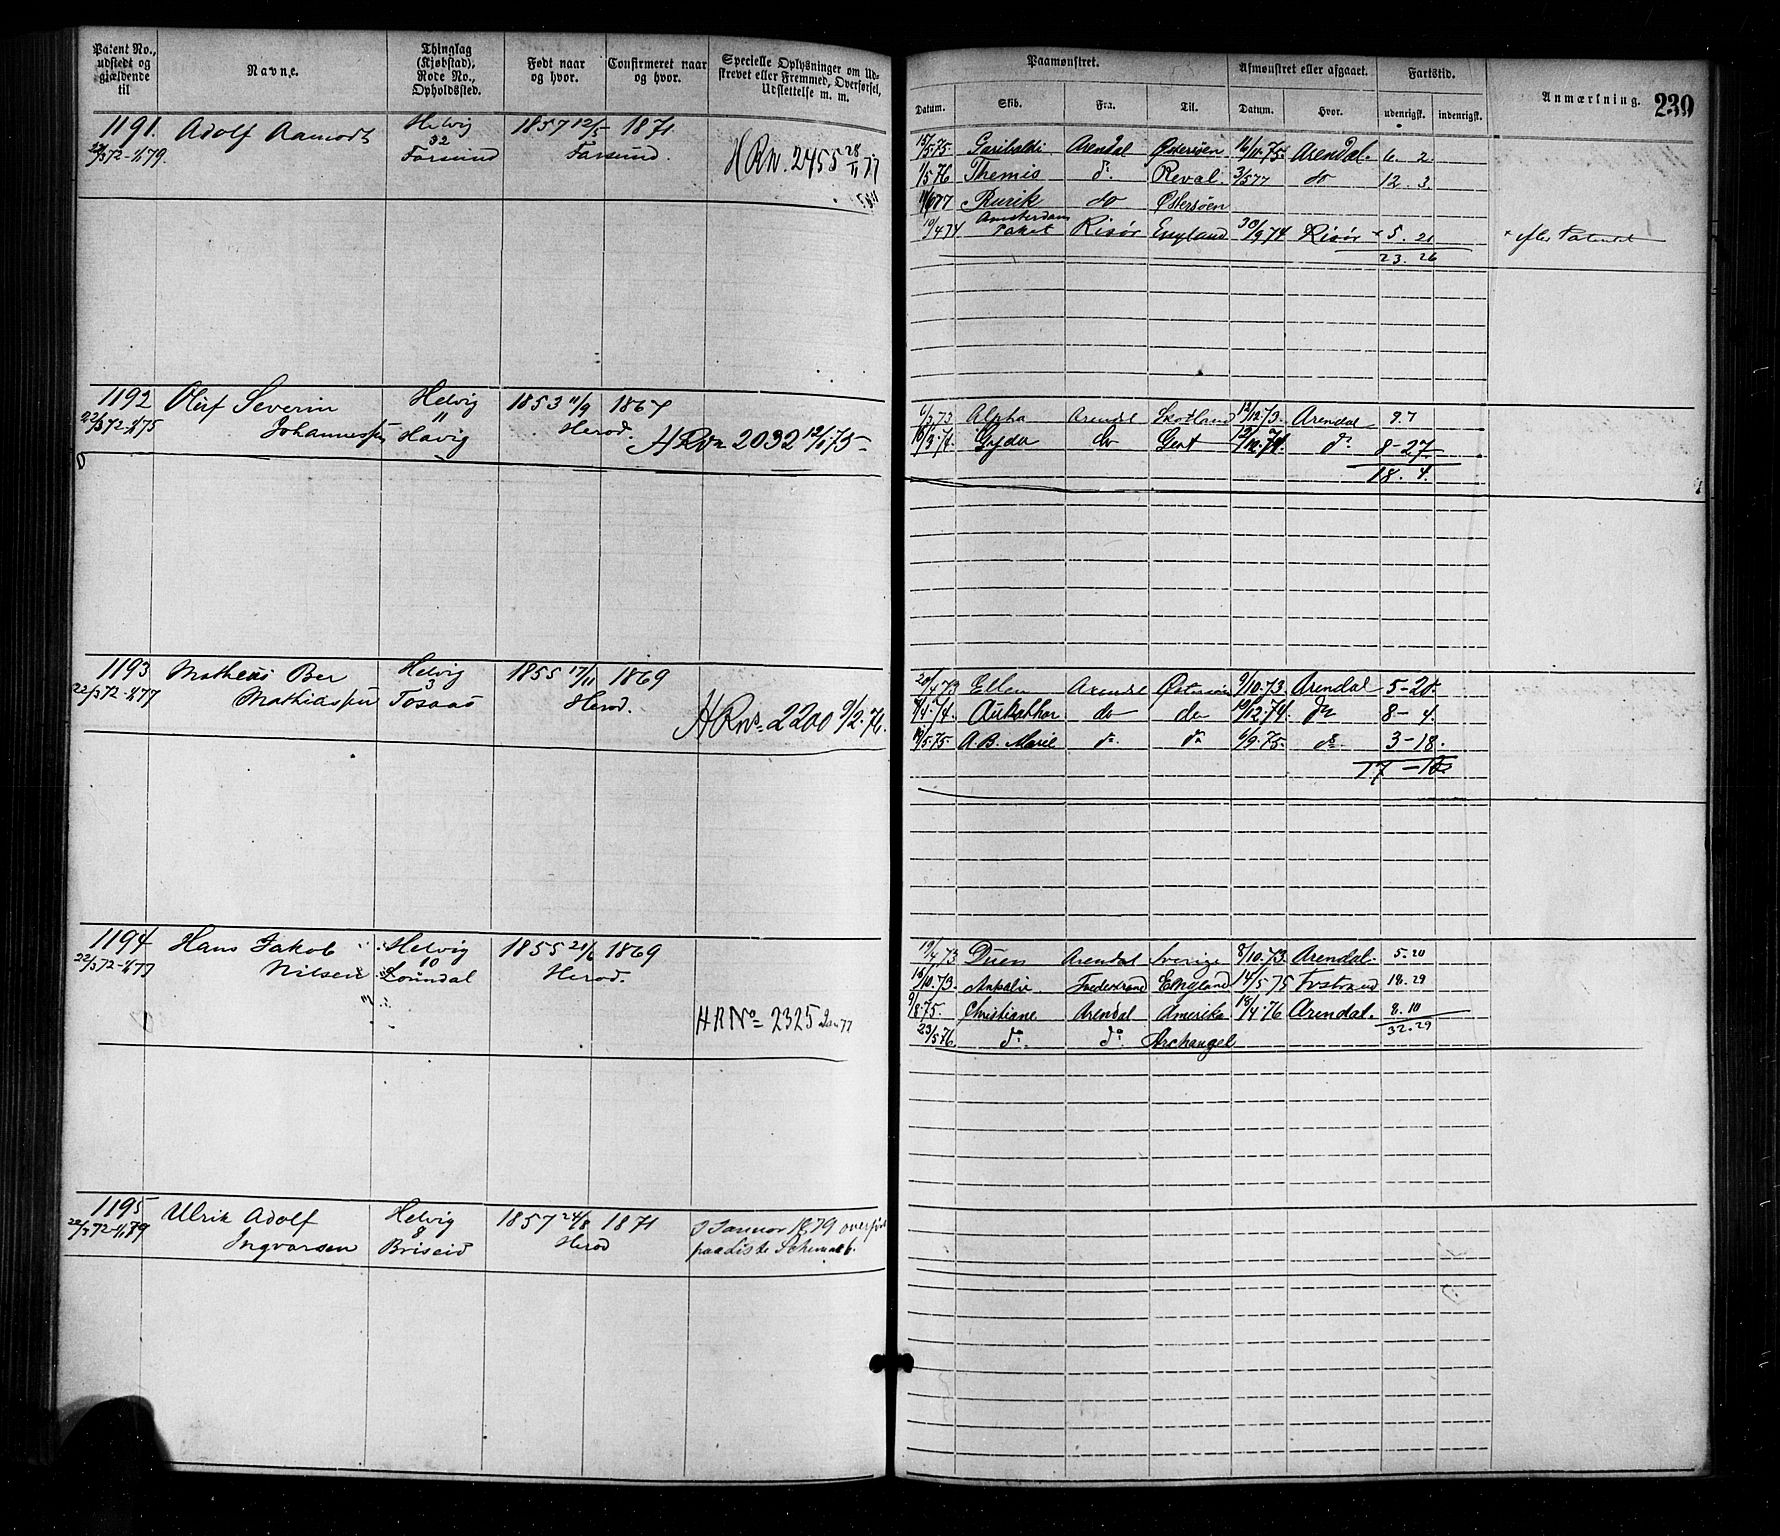 Patent No., udstedt og gjældende til
Navne.
Thinglag (Kjøbstad), Rode No., Opholdssted.
Født naar og hvor.
Confirmeret naar og hvor.
Specielle Oplysninger om Udskrevet eller Fremmed, Overførsel, Udslettelse m. m.
Paamønstret.
Afmønstret eller afgaaet.
Fartstid.
Anmærkning.
239
Datum. Skib. Fra. Til. Datum. Hvor. udenrigsk. indenrigsk.
1191. Adolf Aamodt Helvig 1857 12/5 1871
22/3 72-1/1 79. 32 Farsund Farsund.
HRNo. 2455 28/11 77
15/5 75. Garibaldi Arendal Østersøen 16/11 75. Arendal. 6. 2
1/5 76 Themis do Reval 3/5 77 do 12. 3.
Rurik do Østersøen
10/4 74 Amsterdam Paket Risør England 30/9 74 Risør × 5. 21 × efter Patentet
23. 26
1192 Oluf Severin Helvig 1853 11/9 1867
22/3 72-1/1 75 Johannessen 11 Havig Herod.
HRNo 2032 12/1 75-
6/3 73 Alpha Arendal Skotland 12/12 73. Arendal 9 7
Gyda do Gent 12/12 74. do 8-27
18. 4.
1193 Mathias Ber Helvig 1855 17/11 1869
22/3 72-1/1 77 Mathiassen 3 Tosaas Herod.
HRNo. 2200 9/2. 76.
20/4 73 Ellen Arendal Østersøen 9/10 73 Arendal 5-20.
do do 19/12 74. do 8- 4.
19/5 75- A.B. Marie do do 6/9 75. do 3-18.
17
1194 Hans Jakob Helvig 1855 21/6 1869
22/3 72-1/1 77 Nilsen 10 Loundal Herod.
HRNo= 2325 Jan 77
19/4 73 Duen Arendal Sverige 8/10 73. Arendal. 5.20
16/10 73. England 14/5 75 18.29
9/8 75. Christiane Arendal Amerika 18/4 76 Arendal. 8. 10
32.29
23/5 76 do do Archangel
1195 Ulrik Adolf Helvig 1857 24/8 1871
22/3 72-1/1 79 Ingvarsen 8 Briseid Herod
I Januar 1879 overført
paa Liste Schema 6.